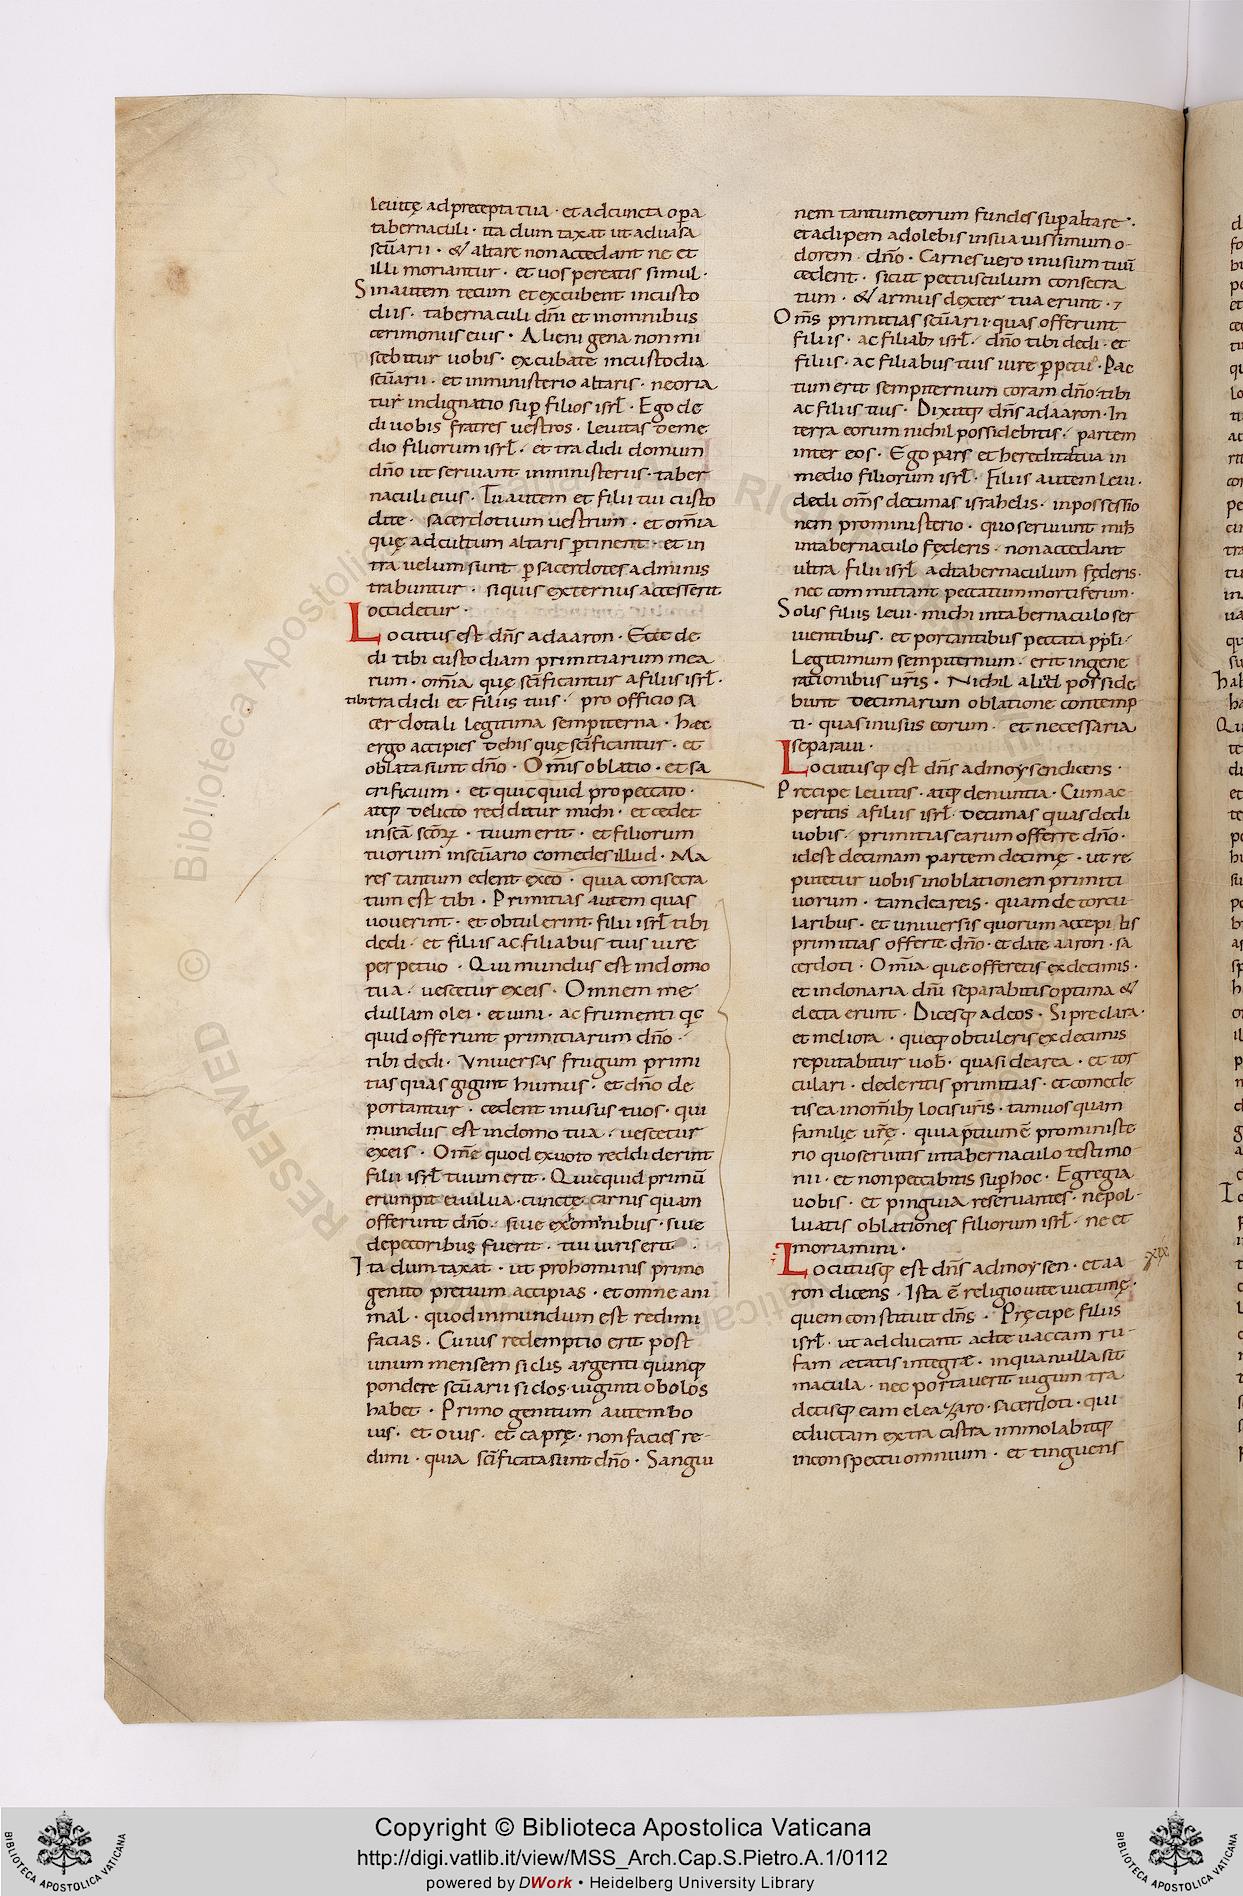 leuitę ad precepta tua · et ad cuncta oꝑa
tabernaculi · ita dum taxat ut ad uasa
scūarii · & altare non accedant ne et
illi moriantur · et uos pereatis simul ·
Sin autem tecum et excubent in custo
diis · tabernaculi dn̄i et in omnibus
cerimoniis eius · Alienigena non mi
scebitur uobis · excubate in custodia
scūarii · et in ministerio altaris · ne oria
tur indignatio suꝑ filios isrl̄ · Ego de
di uobis fratres uestros · leuitas de me
dio filiorum isrl̄ · et tradidi domum
dn̄o ut seruiant in ministeriis · taber
naculi eius · Tu autem et filii tui custo
dite · sacerdotium uestrum · et om̄ia
quę ad cultum altaris ꝑtinent · et in
tra uelum sunt ꝑ sacerdotes adminis
trabuntur · siquis externus accesserit
occidetur ·
Locutus est dn̄s ad aaron · Ecce de
di tibi custodiam primitiarum mea
rum · om̄ia quę sc̄ificantur a filiis isrl̄ ·
tibi tradidi et filiis tuis · pro officio sa
cerdotali legitima sempiterna · hęc
ergo accipies de his quę sc̄ificantur · et
oblata sunt dn̄o · Omīs oblatio · et sa
crificium · et quicquid pro peccato ·
atq; delicto redditur michi · et cedet
in sc̄a sc̄orꝝ · tuum erit · et filiorum
tuorum in scūario comedes illud · Ma
res tantum edent ex eo · quia consecra
tum est tibi · Primitias autem quas
uouerint · et obtulerint filii isrl̄ tibi
dedi · et filiis ac filiabus tuis iure
perpetuo · Qui mundus est in domo
tua · uescetur ex eis · Omnem me
dullam olei · et uini · ac frumenti q̇c
quid offerunt primitiarum dn̄o ·
tibi dedi · Vniuersas frugum primi
tias quas gignit humus · et dn̄o de
portantur · cedent in usus tuos · qui
mundus est in domo tua · uescetur
ex eis · Om̄e quod ex uoto reddiderint
filii isrl̄ tuum erit · Quicquid primū
erumpit e uulua · cunctę carnis quam
offerunt dn̄o · siue ex hominibus · siue
de pecoribus fuerit · tui iuris erit ·
Ita dum taxat · ut pro hominis primo
genito pretium accipias · et omne ani
mal · quod inmundum est redimi
facias · Cuius redemptio erit post
unum mensem siclis argenti quinq;
pondere scūarii siclos uiginti obolos
habet · Primo genitum autem bo
uis · et ouis · et caprę · non facies re-
dimi · quia sc̄ificata sunt dn̄o · Sangui
nem tantum eorum fundes suꝑ altare ·
et adipem adolebis in suauissimum o-
dorem · dn̄o · Carnes uero in usum tuū
cedent · sicut pectusculum consecra
tum · & armus dexter tua erunt · ⁊
Om̄s primitias scūarii quas offerunt
filiis · ac filiab; isrl̄ · dn̄o tibi dedi · et
filiis · ac filiabus tuis iure ꝑpetuo · Pac
tum erit sempiternum coram dn̄o tibi
ac filiis tuis · Dixitq; dn̄s ad aaron · In
terra eorum nichil possidebitis · partem
inter eos · Ego pars et hereditas tua in
medio filiorum isrl̄ · Filiis autem leui ·
dedi om̄s decimas israhelis · in possessio
nem pro ministerio · quo seruiunt mihi
in tabernaculo fęderis · non accedant
ultra filii isrl̄ ad tabernaculum fęderis ·
nec committant peccatum mortiferum ·
Solis filiis leui · michi in tabernaculo ser
uientibus · et portantibus peccata ppl̄i ·
Legitimum sempiternum · erit in gene
rationibus ur̄is · Nichil aliud posside
bunt decimarum oblatione contemp
ti · quas in usus eorum · et necessaria
separaui ·
Locutusq; est dn̄s ad moysen dicens ·
Precipe leuitis · atq; denuntia · Cum ac
peritis a filiis isrl̄ · decimas quas dedi
uobis · primitias earum offerte dn̄o ·
id est decimam partem decimę · ut re
putetur uobis in oblationem primiti
uorum · tam de areis · quam de torcu
laribus · et uniuersis quorum accepistis
primitias offerte dn̄o · et date aaron · sa
cerdoti · Om̄ia que offeretis ex decimis ·
et in donaria dn̄i separabitis optima &
electa erunt · Dicesq; ad eos · Si preclara ·
et meliora · queq; obtuleris ex decimis
reputabitur uob̄ · quasi de area · et tor
culari · dederitis primitias · et comede
tis ea in om̄ib; locis ur̄is · tam uos quam
familię ur̄ę · quia p̄tium ē pro ministe
rio quo seruitis in tabernaculo testimo
nii · et non peccabitis suꝑ hoc · Egregia
uobis · et pinguia reseruantes · ne pol-
luatis oblationes filiorum isrl̄ · ne et
moriamini ·
Locutusq; est dn̄s ad moysen · et aa
xix
ron dicens · Ista ē religio uite uictimę ·
quem constituit dn̄s · Pręcipe filiis
isrl̄ · ut adducant ad te uaccam ru-
fam ætatis integræ · in qua nulla sit
macula · nec portauerit iugum tra
detisq; eam eleazaro · sacerdoti · qui
eductam extra castra immolabitq;
in conspectu omnium · et tinguens
Copyright © Biblioteca Apostolica Vaticana
http://digi.vatlib.it/view/MSS_Arch.Cap.S.Pietro.A.1/0112
powered by DWork • Heidelberg University Library